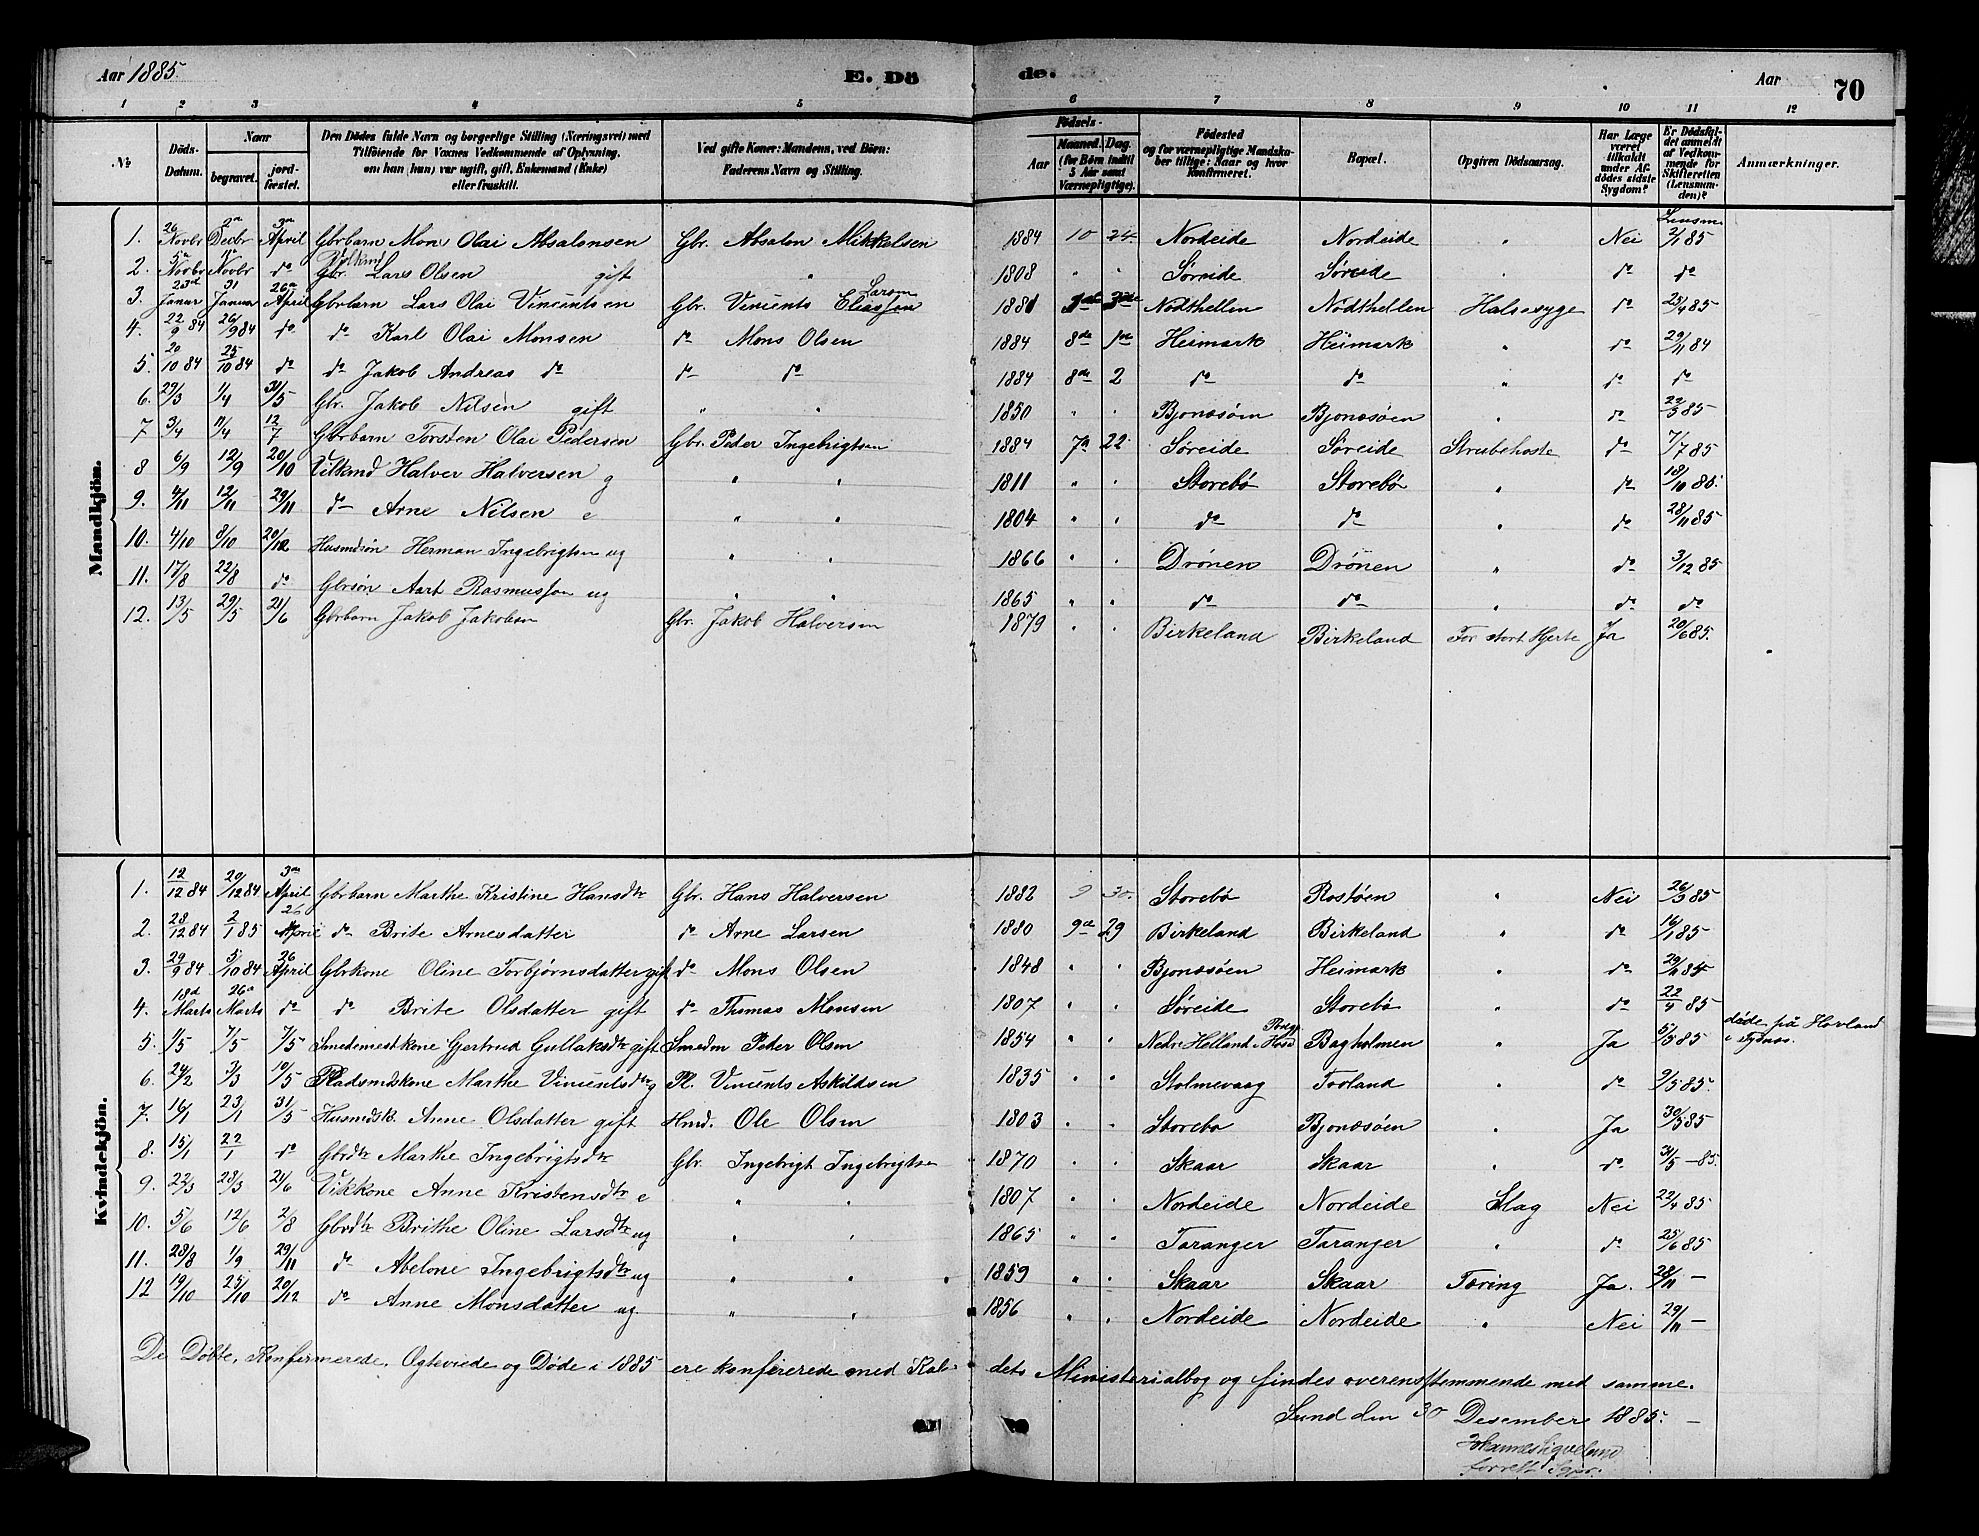 Aar 1885. E. Dö de. Aar 70
1 2 3 4 5 6 7 8 9 10 11 12
No
Döds-Datum.
Naar
begravet.
jord-fæstet.
Den Dödes fulde Navn og borgerlige Stilling (Næringsvei) med Tilföiende for Voxnes Vedkommende af Oplysning, om han (hun) var ugift, gift, Enkemand (Enke) eller fraskilt.
Ved gifte Koner: Mandens, ved Börn: Faderens Navn og Stilling.
Födsels-
Aar
Maaned. Dag.
(for Börn indtil 5 Aar samt Værnepligtige).
Födested og for værnepligtige Mandskaber tillige: Naar og hvor Konfirmeret.
Bopæl.
Opgiven Dödsaarsag.
Har Læge været tilkaldt under Afdödes sidste Sygdom?
Er Dödsfaldet anmeldt af Vedkommende for Skifteretten (Lensmanden)?
Anmærkninger.
Mandkjön.
1. 26 Novbr 2n Decbr 3n April Gbrbarn Mons Olai Absalonsen Gbr. Absalon Mikkelsen 1884 10 24 Nordeide Nordeide " Nei Lensm 2/1 85
2. 5n Novbr Novbr do Gbr. Vilkmd Lars Olsen gift " 1808 " " Søreide Søreide " do do
3. 23d Januar 31 Januar 26n April Gbrbarn Lars Olai Vincentsen Gbr. Vincents Eliassen Larsen 1881 Nødthellen Nødthellen Halssyge do 23/4 85
4. 22/9 84 26/9 84 do do Karl Olai Monsen do Mons Olsen 1884 8de 1ste Heimark Heimark " do 29/11 84
5. 20/10 84 25/10 84 do do Jakob Andreas do do do 1884 8de 2 do do " do do
6. 29/3 1/4 31/5 Gbr. Jakob Nilsen gift " " 1850 " " Bjonæsøen Bjonæsøen " do 22/5 85
7 3/4 11/4 12/7 Gbrbarn Torsten Olai Pedersen Gbr. Peder Ingebrigtsen 1884 7n 22 Søreide Søreide Strubehoste do 7/7 85
8 6/9 12/9 20/10 Vilkmd Halver Halversen g " " 1811 " " Storebø Storebø " do 18/10 85
9. 4/11 12/11 29/11 do Arne Nilsen e " " 1804 " " do do " do 28/11 85
10. 4/10 8/10 20/12 Husmdsøn Herman Ingebrigtsen ug " " 1866 " " Drønen Drønen " do 3/12 85
11. 17/8 22/8 do Gbrsøn Aart Rasmussen ug " " 1865 " " do do " do do
12. 13/5 29/5 21/6 Gbrbarn Jakob Jakobsen Gbr. Jakob Halversen 1879 " " Birkeland Birkeland For stort Hjerte Ja 20/6 85.
Kvindekjön.
1. 12/12 84 20/12 84 3n April Gbrbarn Marthe Kristine Hansdtr Gbr. Hans Halversen 1882 9 30. Storebø Rostøen " Nei 26/3 85
2. 28/12 84 2/1 85 26 April do Brite Arnesdatter do Arne Larsen 1880 9de 29 Birkeland Birkeland " do 16/1 85
3. 29/9 84 5/10 84 26 April Gbrkone Oline Torbjørnsdatter gift do Mons Olsen 1848 " " Bjonæsøen Heimark " do 29/11 85
4. 18d Marts 26n Marts do do Brite Olsdatter gift do Thomas Monsen 1807 " " Søreide Storebø " do 22/4 85
5. 1/5 7/5 7/5 Smedemestkone Gjertrud Gullaksdtr gift Smedm Peder Olsen 1854 " " Nedre Hølland i Hosd Bagholmen " Ja 5/5 85 døde på Hovland i Tysnæs.
6. 24/2 3/3 10/5 Pladsmdskone Marthe Vincentsdtr g Pl. Vincents Askildsen 1835 " " Stolmevaag Troland " do 9/5 85.
7. 16/1 23/1 31/5 Husmdsk. Anne Olsdatter gift Hmd. Ole Olsen 1803 " " Storebø Bjonæsøen " Ja 30/5 85
8. 15/1 22/1 do Gbrdtr Marthe Ingebrigtsdtr Gbr. Ingebrigt Ingebrigtsen 1870 " " Skaar Skaar " do 31/5 - 85.
9. 22/3 28/3 21/6 Vilkkone Anne Kristensdtr e " " 1807 " " Nordeide Nordeide Slag Nei 22/4 85
10. 5/6 12/6 2/8 Gbrdtr Brithe Oline Larsdtr ug " " 1865 " " Taranger Taranger " do 25/6 85
11. 28/8 1/9 29/11 do Abelone Ingebrigtsdtr ug " " 1859 " " Skaar Skaar Tæring Ja. 28/11 -
12 19/10 25/10 20/12 do Anne Monsdatter ug " " 1856 " " Nordeide Nordeide " Nei 29/11 -
De Döbte, Konfirmerede, Ogteviede og Døde i 1885 ere konfererede med Kaldets Ministerialbog og findes overensstemmende med samme.
Sund den 30 Desember 1885. -
Johannes Ligvelund